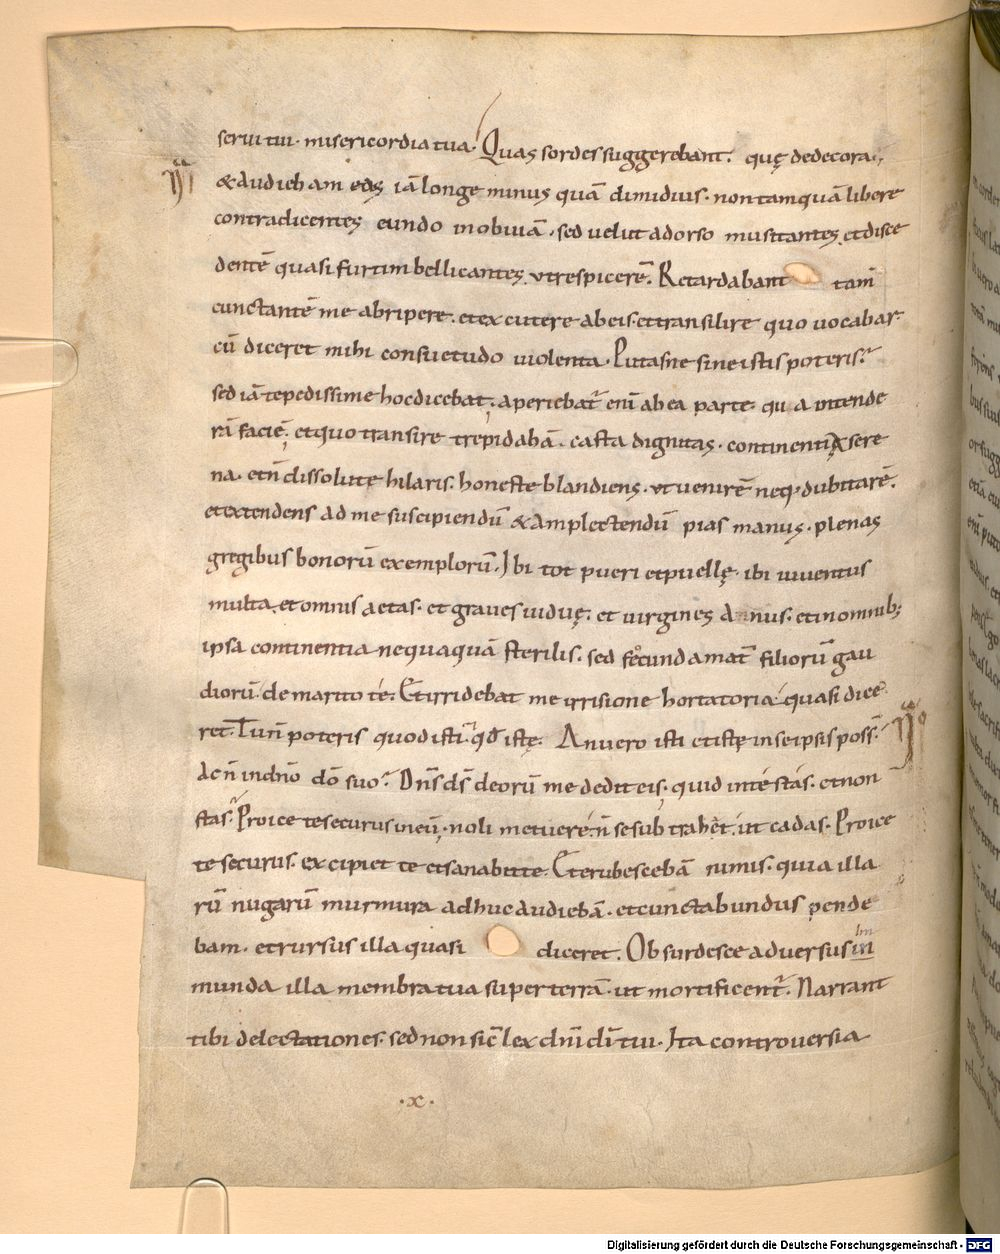 serui tui · misericordia tua · Quas sordes suggerebant · quę dedecora ·
& audiebam eas iā longe minus quā dimidius · non tamquā libere
contradicentes eundo in obuiā · sed uelut a dorso mussitantes et disce
dentē quasi furtim uellicantes ut respicerē · Retardabant tam̄
cunctantē me abripere · et excutere ab eis · et transilire quo uocabar ·
cū diceret mihi consuetudo uiolenta · Putasne sine istis poteris ·
sed iā tepedissime hoc dicebat · aperiebat̄ eni ab ea parte · qu a intende
rā faciē · et quo transire trepidabā · casta dignitas · continentię sere
na · et n̄ dissolute hilaris · honeste blandiens · ut uenirē neq · dubitarē ·
et extendens ad me suscipiendū & amplectendū pias manus · plenas
gregibus bonorū exemplorū · Ibi tot pueri et puellę · ibi iuuentus
multa · et omnis aetas · et graues uiduę · et uirgines anus · et in omnib;
ipsa continentia nequaquā sterilis · sed fecunda mat̄ filiorū gau
diorū · de marito te · Et irridebat me irrisione hortatoria · quasi dice
ret · Tu n̄ poteris quod isti · qđ istę · An uero isti et istę in se ipsis poss̄
ac n̄ in dn̄o dō suo · Dn̄s ds̄ deorū me dedit eis · quid in te stas · et non
stas · Proice te securus in eū · noli metuere · n̄ se subtrahet · ut cadas · Proice
te securus · excipiet te et sanabit te · Et erubescebā nimis · quia illa
rū nugarū murmura adhuc audiebā · et cunctabundus pende
bam · et rursus illa quasi diceret · Obsurdesce aduersus in
munda illa membra tua super terrā · ut mortificent̄ · Narrant
tibi delectationes · sed non sic̄ lex dn̄i dī tui · Ita controuersia
· x ·
Digitalisierung gefördert durch die Deutsche Forschungsgemeinschaft - DFG